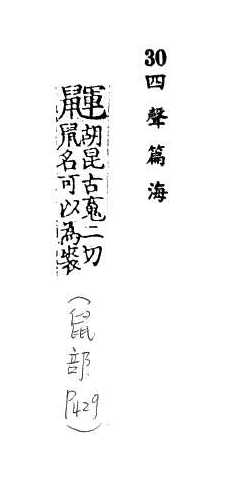 30四聲篇海
鼲胡昆古䰟二切
鼠名可以為裘
(鼠部P429)